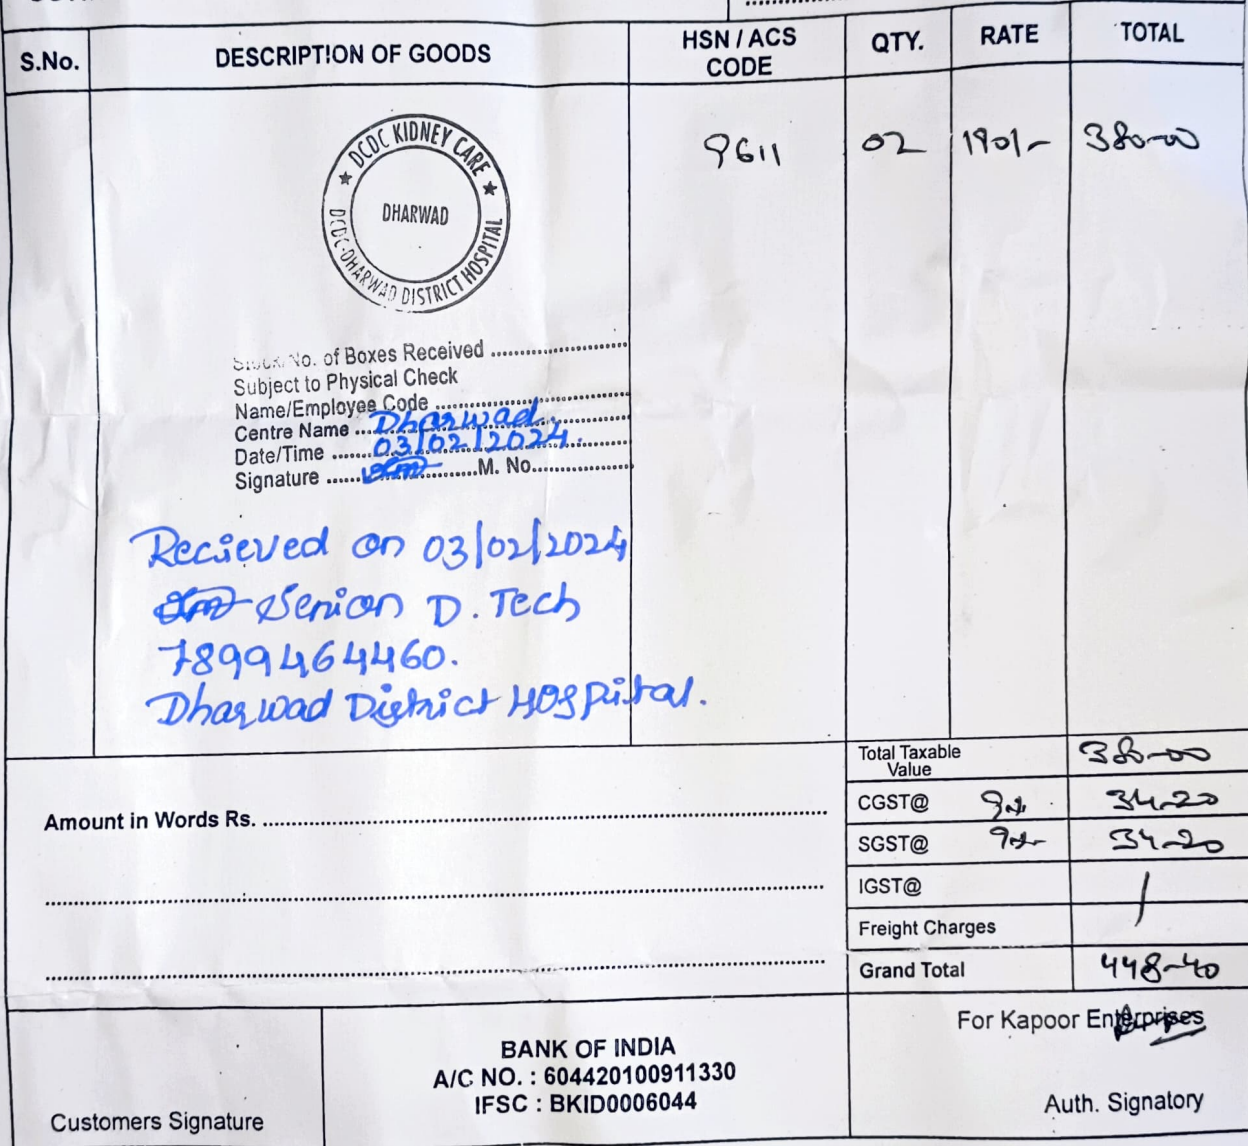 S.No. DESCRIPTION OF GOODS HSN / ACS CODE QTY. RATE TOTAL
9611 02 190/- 380-00
★ DCDC KIDNEY CARE ★
DHARWAD
DCDC-DHARWAD DISTRICT HOSPITAL
Stock/No. of Boxes Received
Subject to Physical Check
Name/Employee Code
Centre Name Dharwad
Date/Time 03/02/2024.
Signature M. No.
Recieved on 03/02/2024
Senior D. Tech
7899464460.
Dharwad District Hospital.
Total Taxable Value 380-00
Amount in Words Rs.
CGST@ 9% 34-20
SGST@ 9% 34-20
IGST@
Freight Charges
Grand Total 448-40
For Kapoor Enterprises
BANK OF INDIA
A/C NO. : 604420100911330
IFSC : BKID0006044
Customers Signature
Auth. Signatory